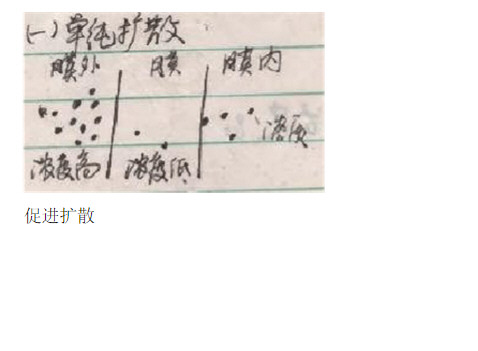 (一)单纯扩散
膜外 膜 膜内
浓度
浓度高 浓度低
促进扩散